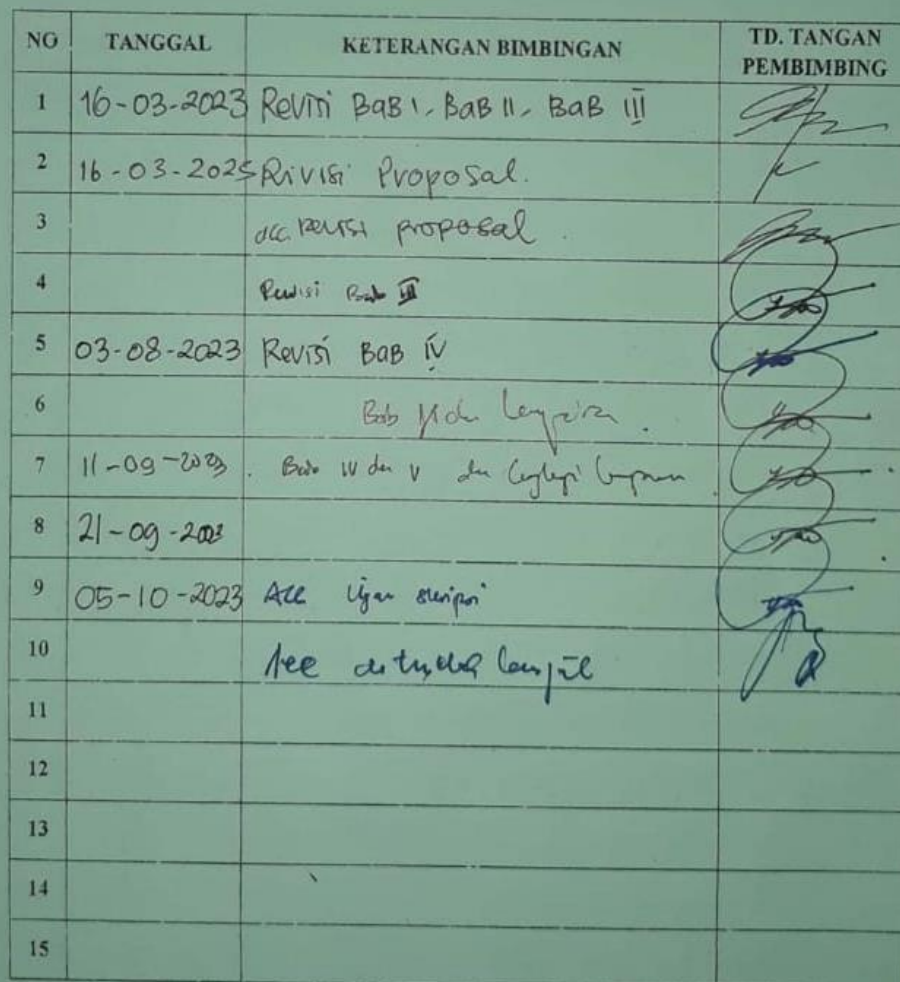 NO TANGGAL KETERANGAN BIMBINGAN TD. TANGAN PEMBIMBING
1 16-03-2023 Revisi BaB I, BaB II, BaB III
2 16-03-2025 Rivisi Proposal.
3 acc. revisi proposal.
4 Revisi Bab III
5 03-08-2023 Revisi BaB IV
6 Bab
7 11-09-2023. Bab IV dan V dan lengkapi
8 21-09-2023
9 05-10-2023 Acc Ujian skripsi
10 Acc
11
12
13
14
15